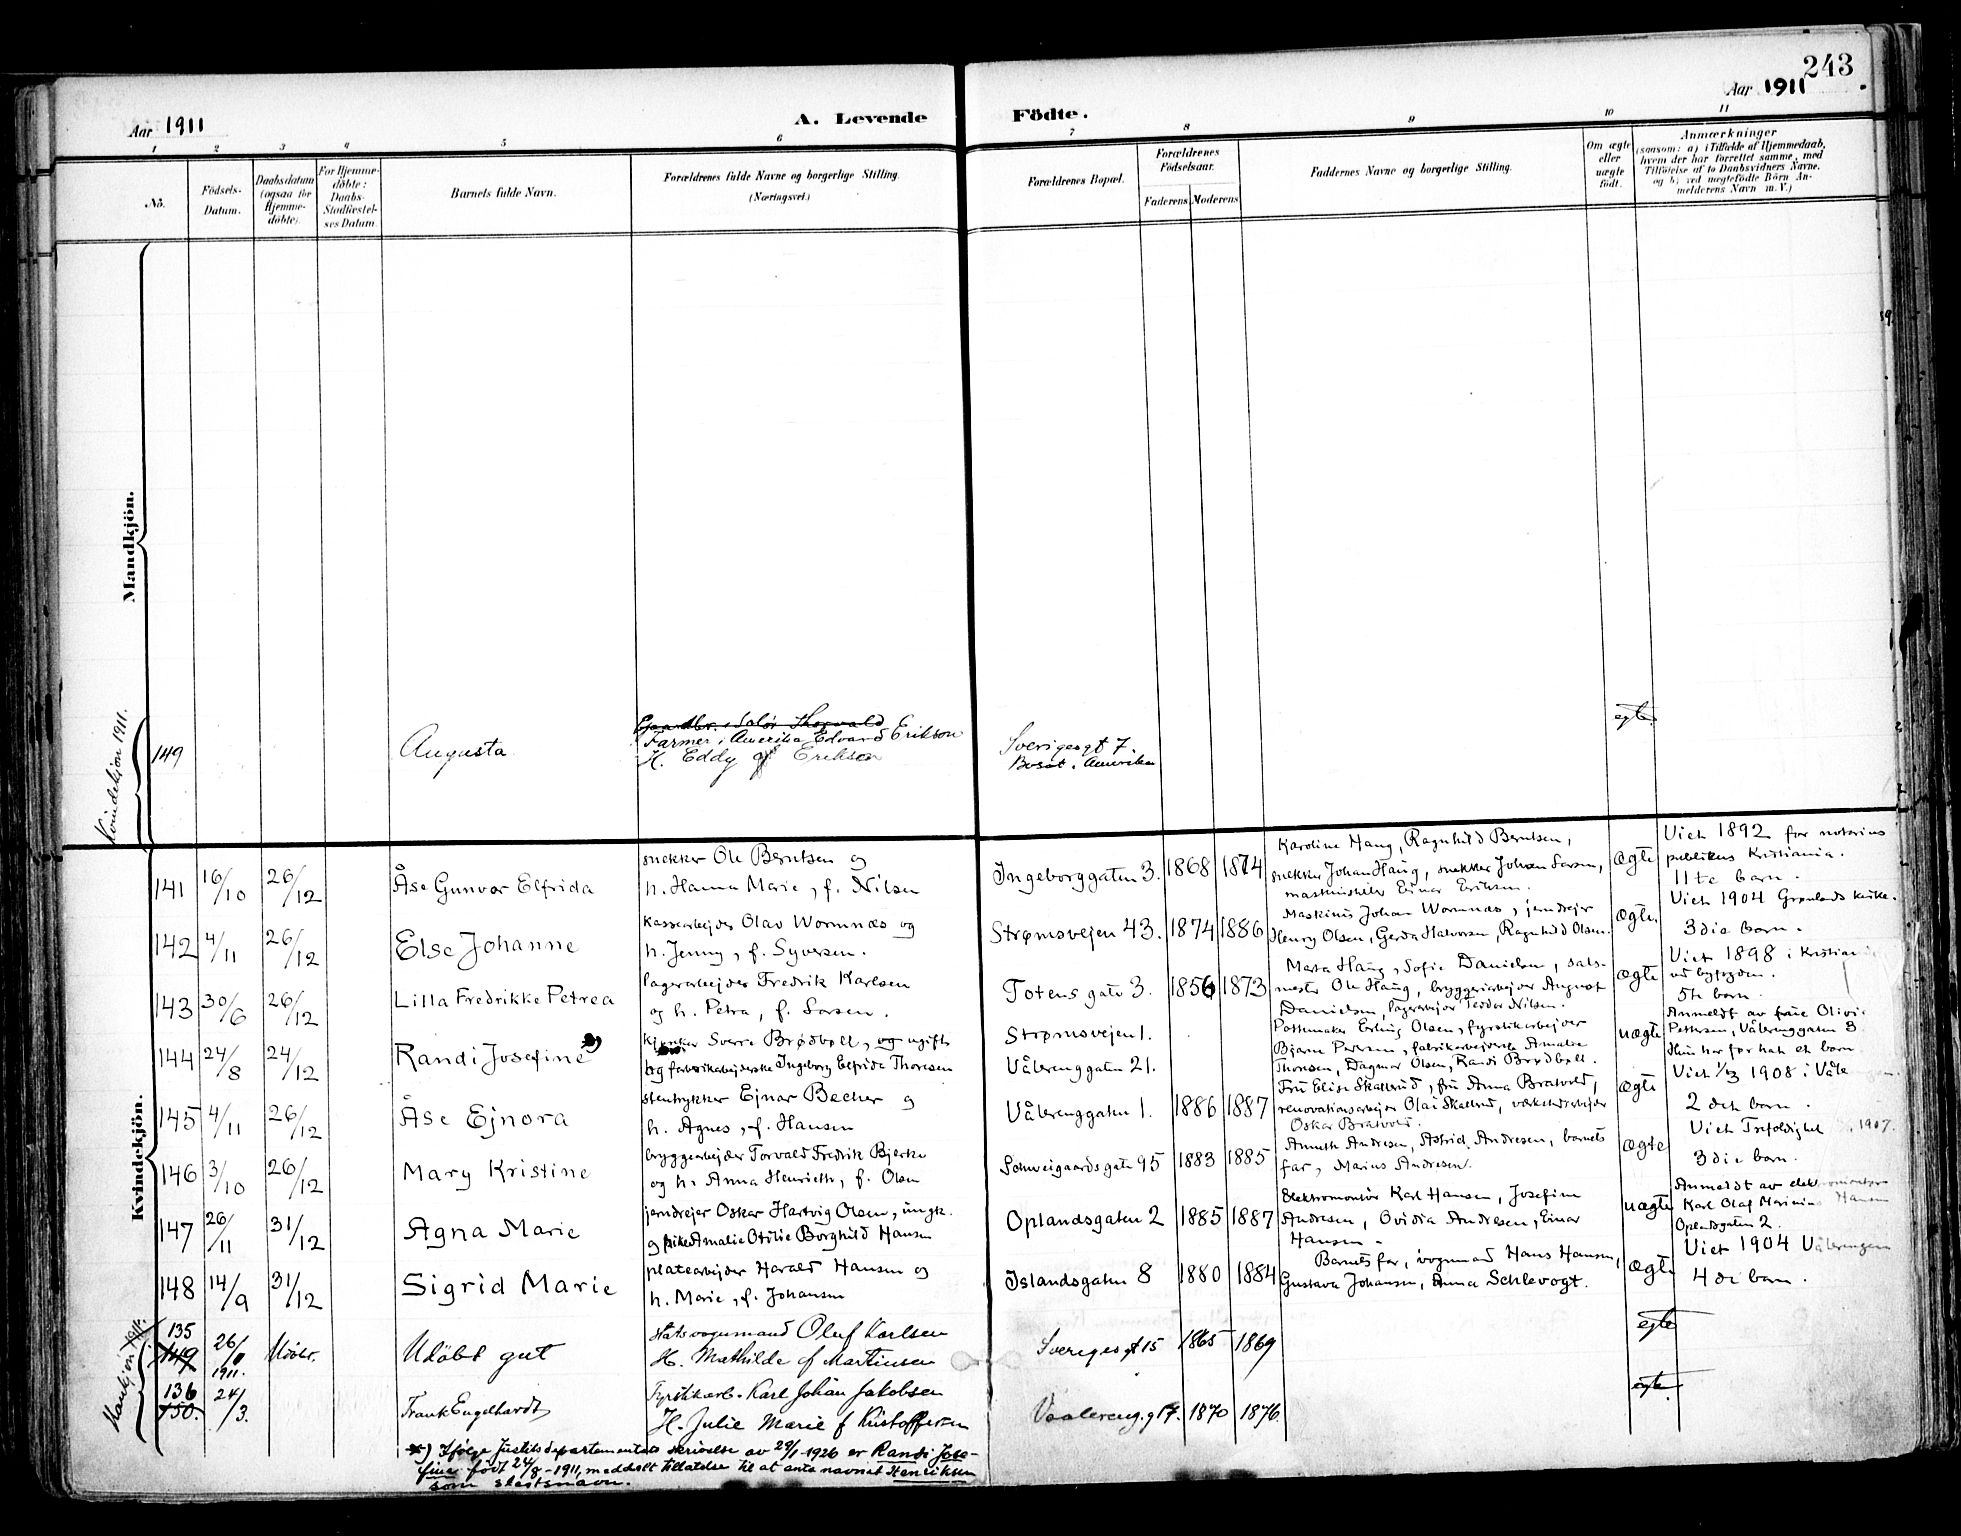 243
Aar 1911
Aar 1911
A. Levende Födte.
1 2 3 4 5 6 7 8 9 10 11
No.
Födsels-
Datum.
Daabsdatum
(ogsaa for
Hjemme-
döbte).
For Hjemme-
döbte:
Daabs-
Stadfæstel-
ses Datum.
Barnets fulde Navn.
Forældrenes fulde Navne og borgerlige Stilling.
(Næringsvei.)
Forældrenes Bopæl.
Forældrenes
Födselsaar.
Faderens Moderens
Faddernes Navne og borgerlig Stilling.
Om ægte
eller
uægte
födt.
Anmærkninger
(saasom: a) i Tilfælde af Hjemmedaab,
hvem der har forrettet samme, med
Tilföielse af to Daabsvidners Navne.
og b) ved uægtefödte Börn An-
melderens Navn m. V.)
Mandkjön.
Kvindekjøn 1911.
149
Augusta
Farmer i Amerika Edvard Erikson
H. Eddy f Erikson
Sverigesgt 7.
Bosat i Amerika
egte
Kvindekjön.
141 16/10 26/12
Åse Gunvor Elfrida
snekker Ole Berntsen og
h. Hanna Marie, f. Nilsen
Ingeborggaten 3. 1868 1874
Karoline Haug, Ragnhild Berntsen,
snekker Johan Haug, snekker Johan Larsen,
maskinsliber Einar Eriksen.
ægte
Viet 1892 for notarius
publikus Kristiania.
11te barn.
142 4/11 26/12
Else Johanne
Kassearbejder Olav Wormnæs og
h. Jenny, f. Syversen.
Strømsvejen 43. 1874 1886
Maskinis Johan Wormnæs, jerndrejer
Henry Olsen, Gerda Halvorsen, Ragnhild Olsen.
ægte.
Viet 1904 Grønlands kirke.
3die barn.
143 30/6 26/12
Lilla Fredrikke Petrea
lagerarbejder Fredrik Karlsen
og h. Petra, f. Larsen.
Totens gate 3. 1856 1873
Marta Haug, Sofie Danielsen, sals-
mester Ole Haug, bryggeriarbejder August
Danielsen, lagerarbejder Teodor Nilsen.
ægte
Viet 1898 i Kristiania
ved byfogden.
5te barn.
144 24/8 24/12
Randi Josefine *)
Sverre Brødbøll, og ugifte
og fabrikarbejderske Ingeborg Elfrida Thoresen
Strømsvejen 1.
Vålerenggaten 21.
Pottemaker Erling Olsen, fyrstikarbejder
Bjarne Petersen, fabrikarbejderske Amalie
Thoresen, Dagmar Olsen, Randi Brødbøll.
uægte
Anmeldt av frøie Olivia
Pettersen, Vålerenggaten 3
Hun har før hat et barn
145 4/11 26/12
Åse Ejnora
stentrykker Ejnar Becker og
h. Agnes, f. Hansen
Vålerenggaten 1. 1886 1887
Fru Elise Skallerud, fru Anna Bratvold,
renovationsarbejder Olai Skallerud, værkstedsarbejder
Oskar Bratvold.
ægte
Viet 1/3 1908 i Våle
2det barn.
146 3/10 26/12
Mary Kristine
bryggearbejder Torvald Fredrik Bjerke
og h. Anna Henriette, f. Olsen
Schweigaardsgate 95 1883 1885
Anneth Andresen, Astrid Andresen, barnets
far, Marius Andresen.
ægte
Viet Trefoldighet 1907.
3die barn.
147 26/11 31/12
Agna Marie
jerndrejer Oskar Hartvig Olsen, ungk.
og pike Amalie Otilie Borghild Hansen
Oplandsgaten 2 1885 1887
Elektromontör Karl Hansen, Josefine
Andresen, Ovidia Andresen, Einar
Hansen.
uægte
Anmeldt av elektromontør
Karl Olaf Marinius Hansen
Oplandsgaten 2.
148 14/9 31/12
Sigrid Marie
platearbejder Harald Hansen og
h. Marie, f. Johansen
Islandsgaten 8 1880 1884
Barnets far, vognmand Hans Hansen,
Gustava Johansen, Anna Schlevogt.
ægte
Viet 1904 Vålerengen
4de barn.
Mankjøn 1911.
135
149 26/11 1911. Udøbt.
Udøbt gut
statsvognmand Oluf Karlsen
H. Mathilde f Martinsen
Sverigesgt 15 1865 1869
egte
136
150. 24/3.
Frank Engelhardt
Fyrstikarb. Karl Johan Jakobsen
H. Julie Marie f Kristoffersen
Vaalereng. g 17. 1870 1876.
egte
*) Ifølge Justitsdepartementets skrivelse av 29/1-1926 er Randi Jose-
fine født 24/8-1911, meddelt tillatelse til at anta navnet Henriksen
som slektsnavn.